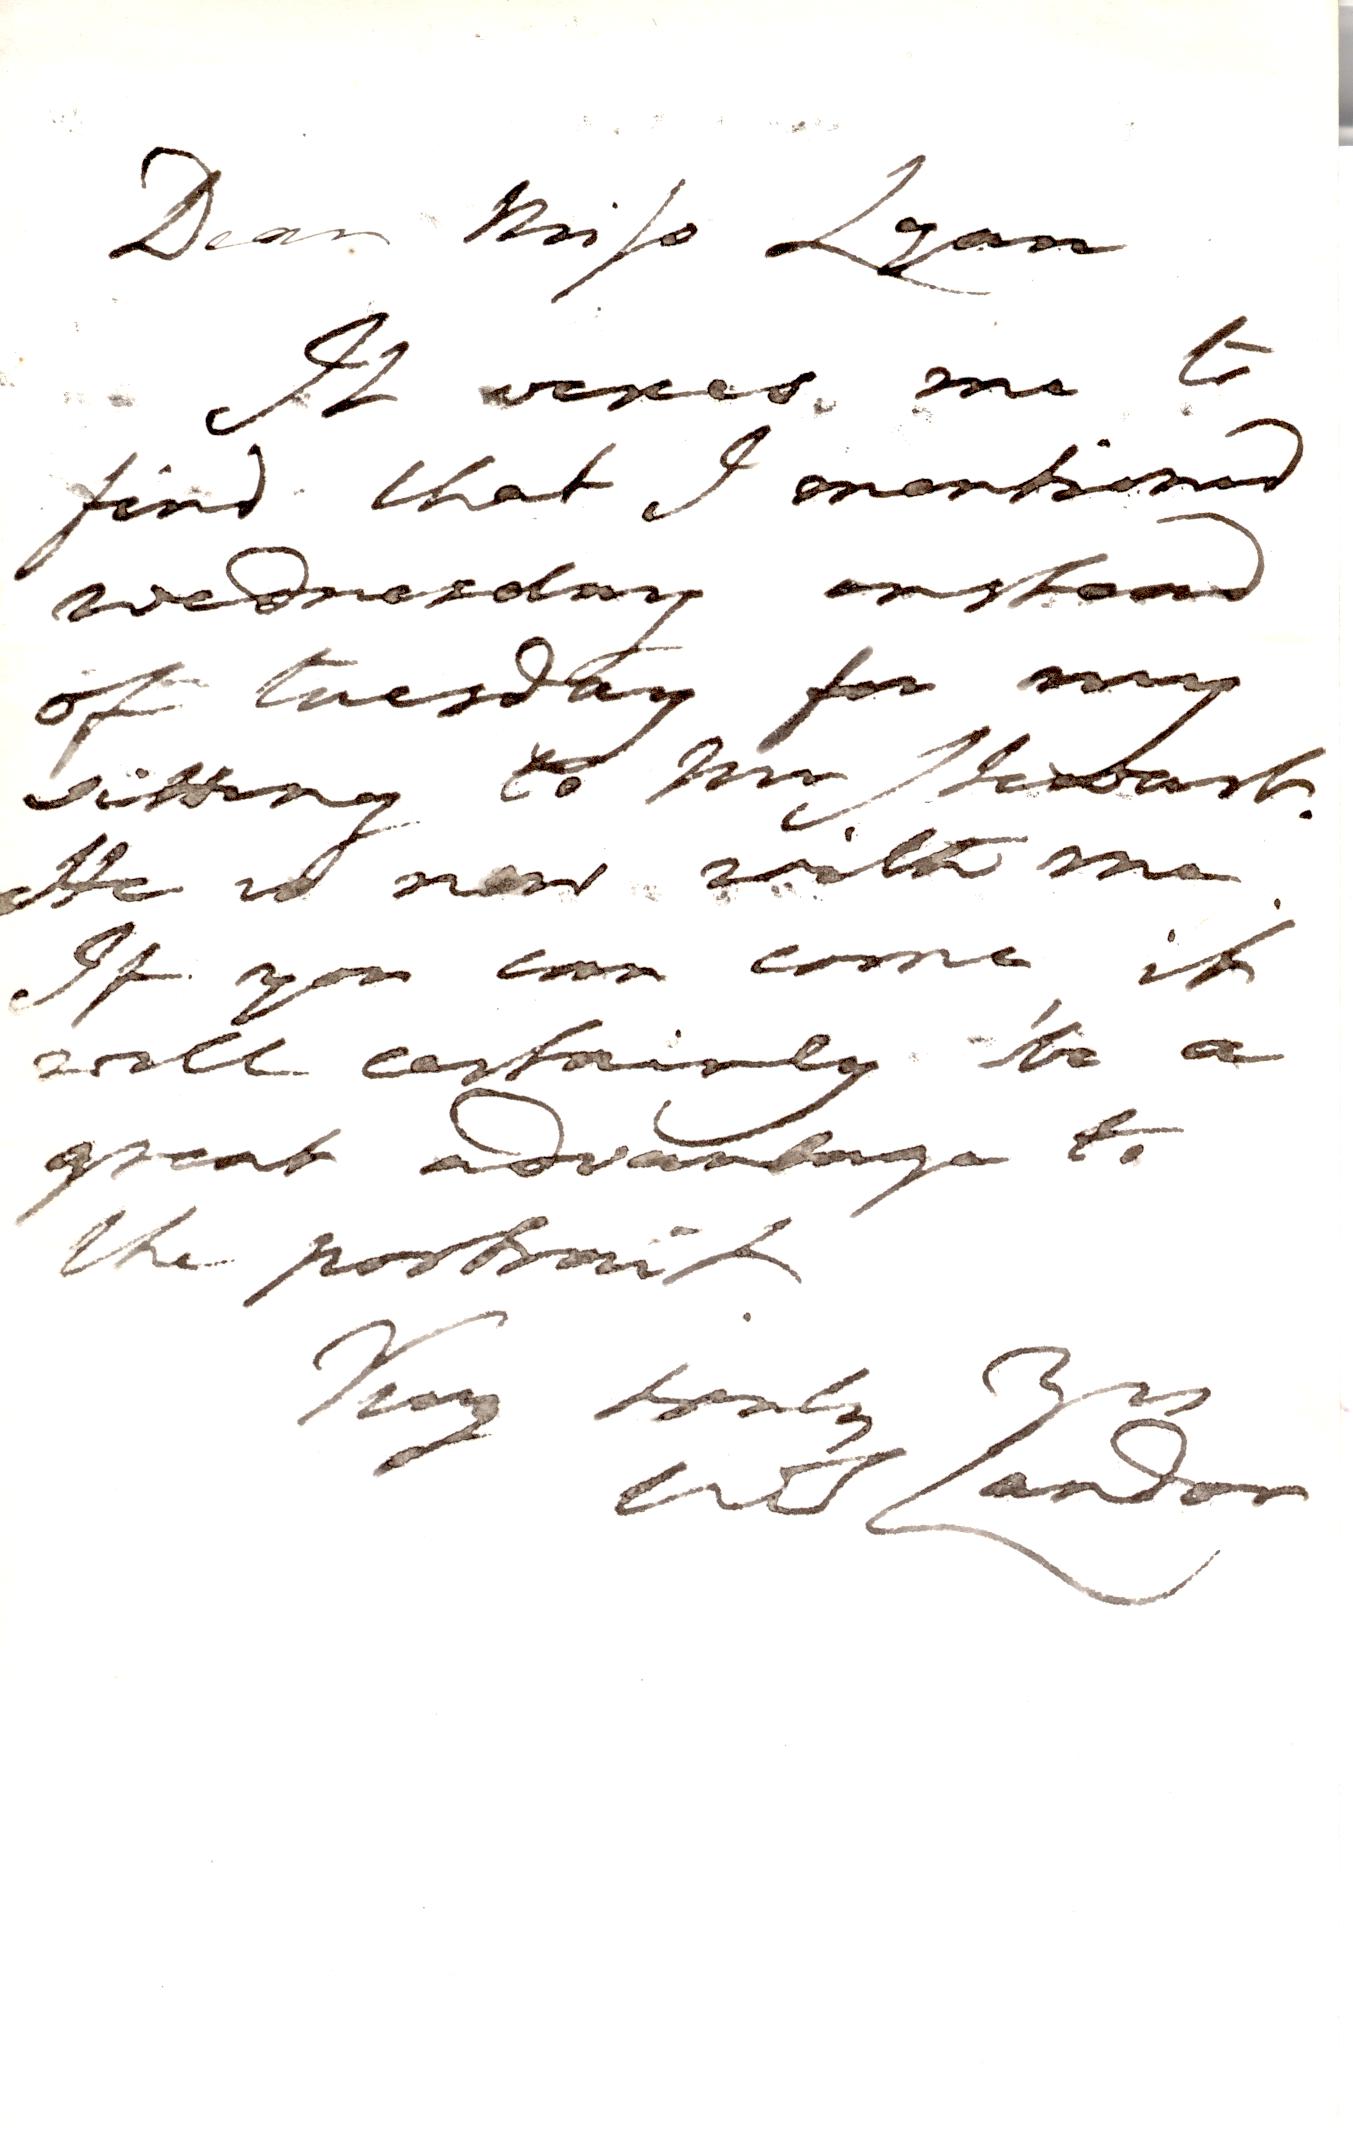 Dear Miss Lynn
It vexes me to
find that I mentioned
wednesday instead
of tuesday for my
sitting to Mr Stewart.
He is now with me.
If you can come it
will certainly be a
great advantage to
the portrait.
Very truly Yrs
WS Landor